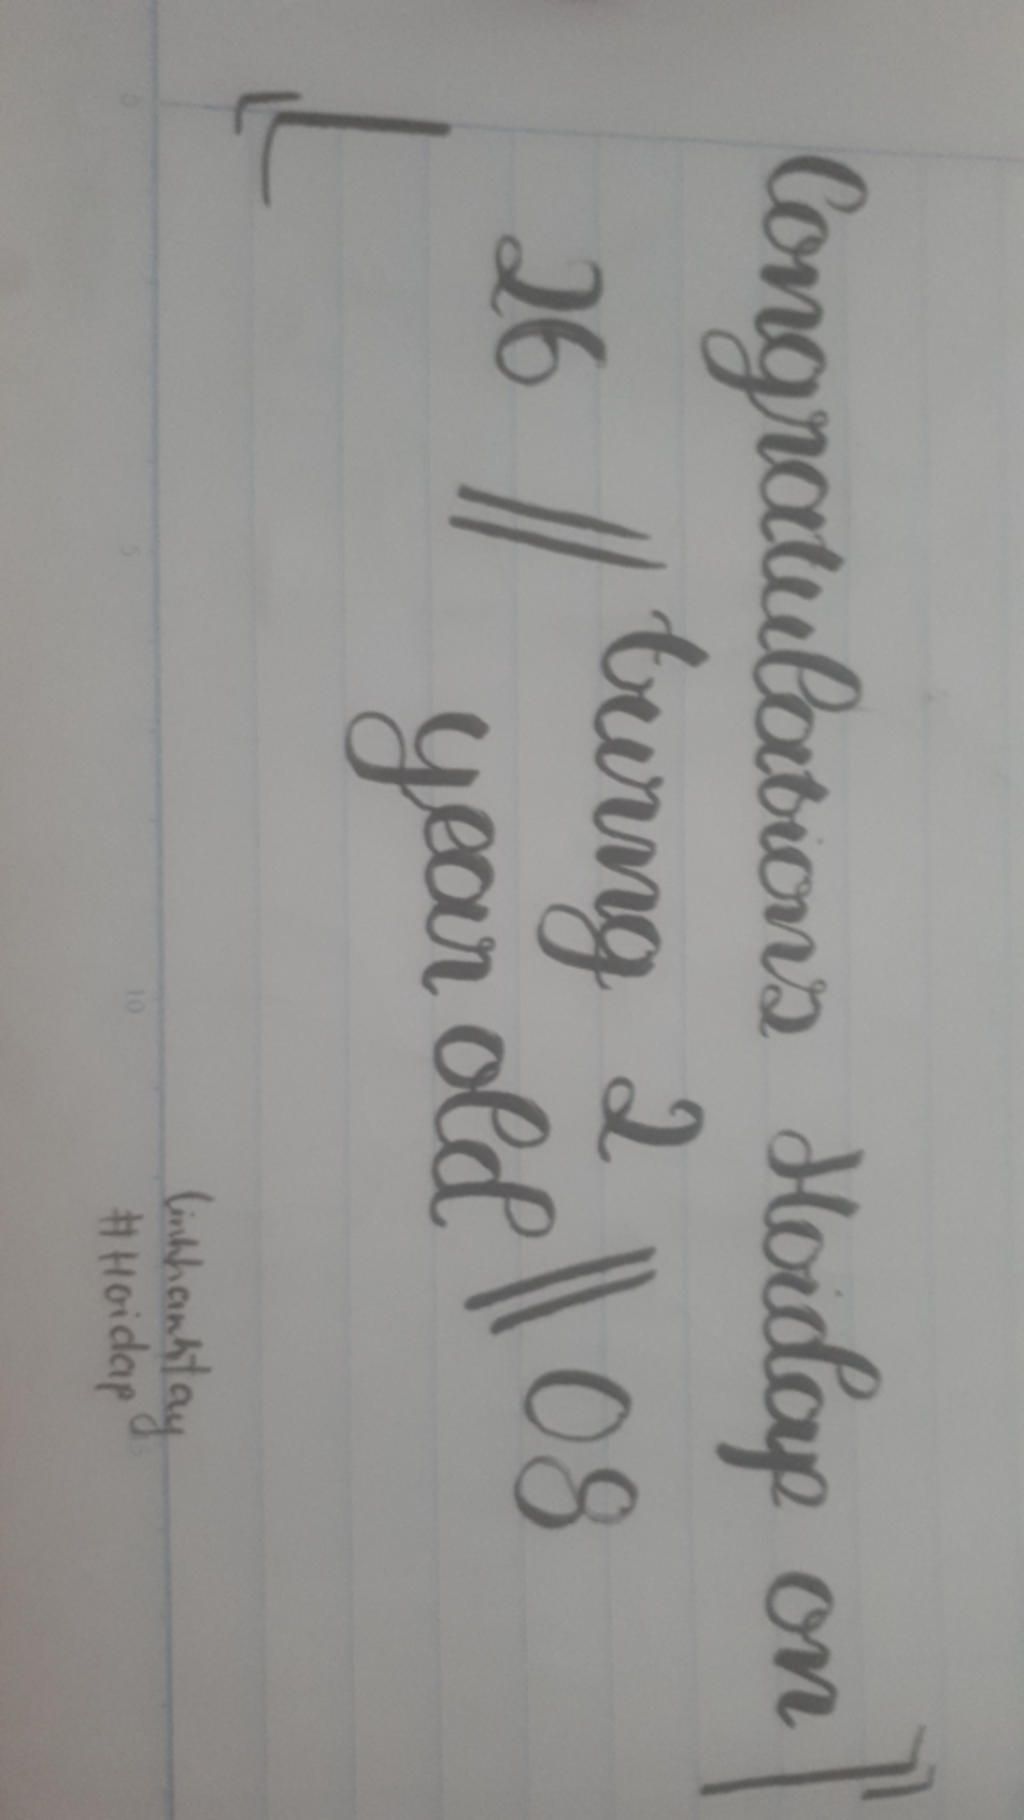 Congratulations Hoidap on
26 // turing 2 \\ 08
year old
linhhanhtay
#Hoidap